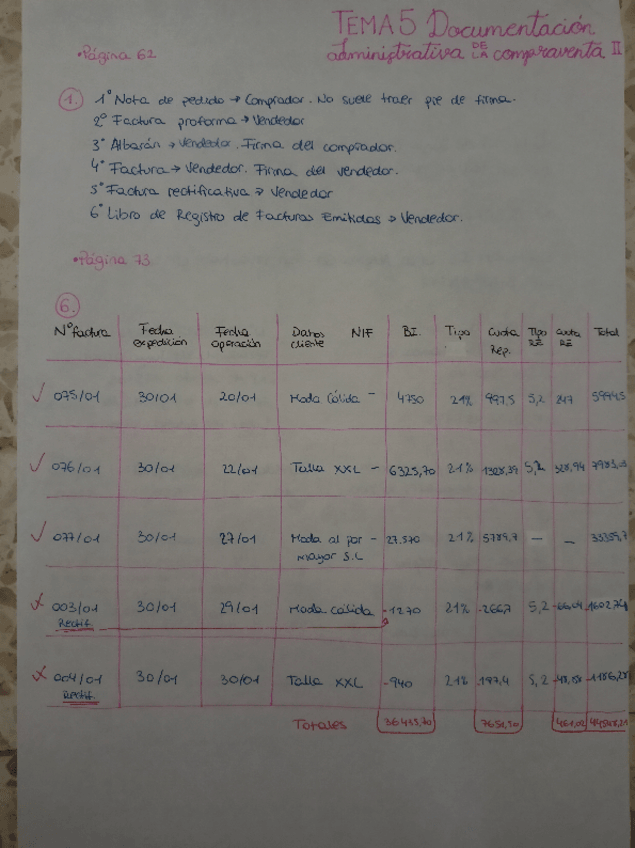 TEMA 5 Documentación
•Página 62
administrativa DE LA compraventa II
1. 1º Nota de pedido → Comprador. No suele traer pie de firma.
2º Factura proforma → Vendedor
3º Albarán → Vendedor. Firma del comprador.
4º Factura → Vendedor. Firma del vendedor.
5º Factura rectificativa → Vendedor
6º Libro de Registro de Facturas Emitidas → Vendedor.
•Página 73
6.
Nº factura Fecha expedicion Fecha operación Datos cliente NIF BI. Tipo Cuota Rep. Tipo RE Cuota RE Total
✓ 075/01 30/01 20/01 Moda Cálida - 4750 21% 997,5 5,2 247 5994,5
✓ 076/01 30/01 22/01 Talla XXL - 6325,70 21% 1328,39 5,2 328,94
✓ 077/01 30/01 27/01 Moda al por mayor S.L - 27.570 21% 5789,7 — —
x 003/01 Rectif. 30/01 29/01 Moda cálida -1270 21% -266,7 5,2 -66,04 -1602,74
x 004/01 Rectif. 30/01 30/01 Talla XXL -940 21% -197,4 5,2 -1186,28
Totales 36435,70 7651,50 461,02